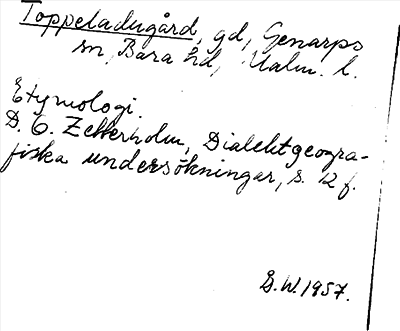 Toppeladugård, gd, Genarps
sn, Bara hd, Malm. l.
Etymologi.
D. O. Zetterholm, Dialektgeogra-
fiska undersökningar, s. 12 f.
G.W. 1957.